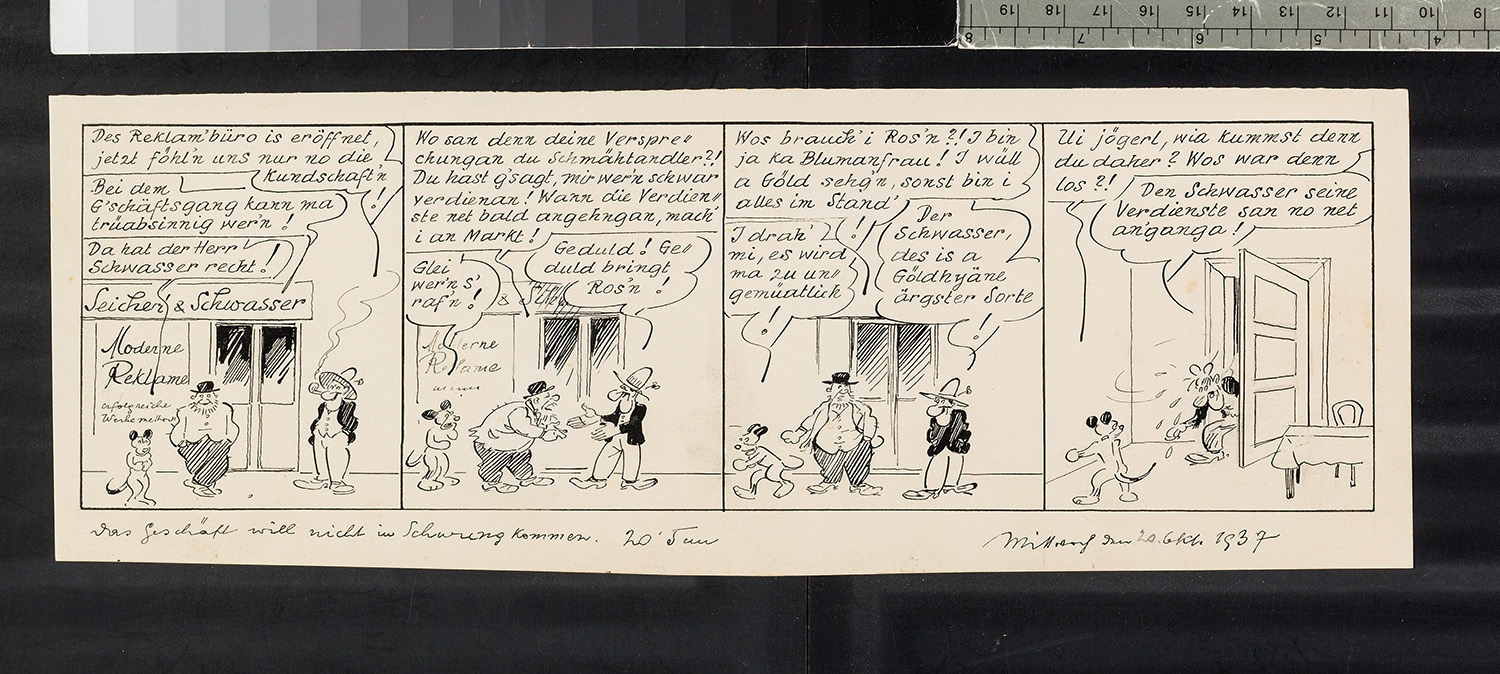 Des Reklam'büro is eröffnet,
jetzt föhl'n uns nur no die
Kundschaft'n!
Bei dem
G'schäftsgang kann ma
trüabsinnig wer'n!
Da hat der Herr
Schwasser recht!
Seicherl & Schwasser
Moderne
Reklame
erfolgreiche
Wo san denn deine Verspre=
chungan du Schmähtandler?!
Du hast g'sagt, mir wer'n schwar
verdienan! Wann die Verdien=
ste net bald angehngan, mach'
i an Markt!
Geduld! Ge=
duld bringt
Ros'n!
Glei
wer'n s'
raf'n!
&
Moderne
Reklame
Wos brauch' i Ros'n?! I bin
ja ka Blumanfrau! I wüll
a Göld sehg'n, sonst bin i
alles im Stand'!
Der
Schwasser,
des is a
Göldhyäne
ärgster Sorte!
I drah'
mi, es wird
ma zu un=
gemüatlich!
Ui jögerl, wia kummst denn
du daher? Wos war denn
los?!
Den Schwasser seine
Verdienste san no net
an'ganga!
Das Geschäft will nicht in Schwung kommen. 20
Mittwoch den 20. Okt. 1937
19 18 17 16 15 14 13 12 11 10 9
8 7 6 5 4